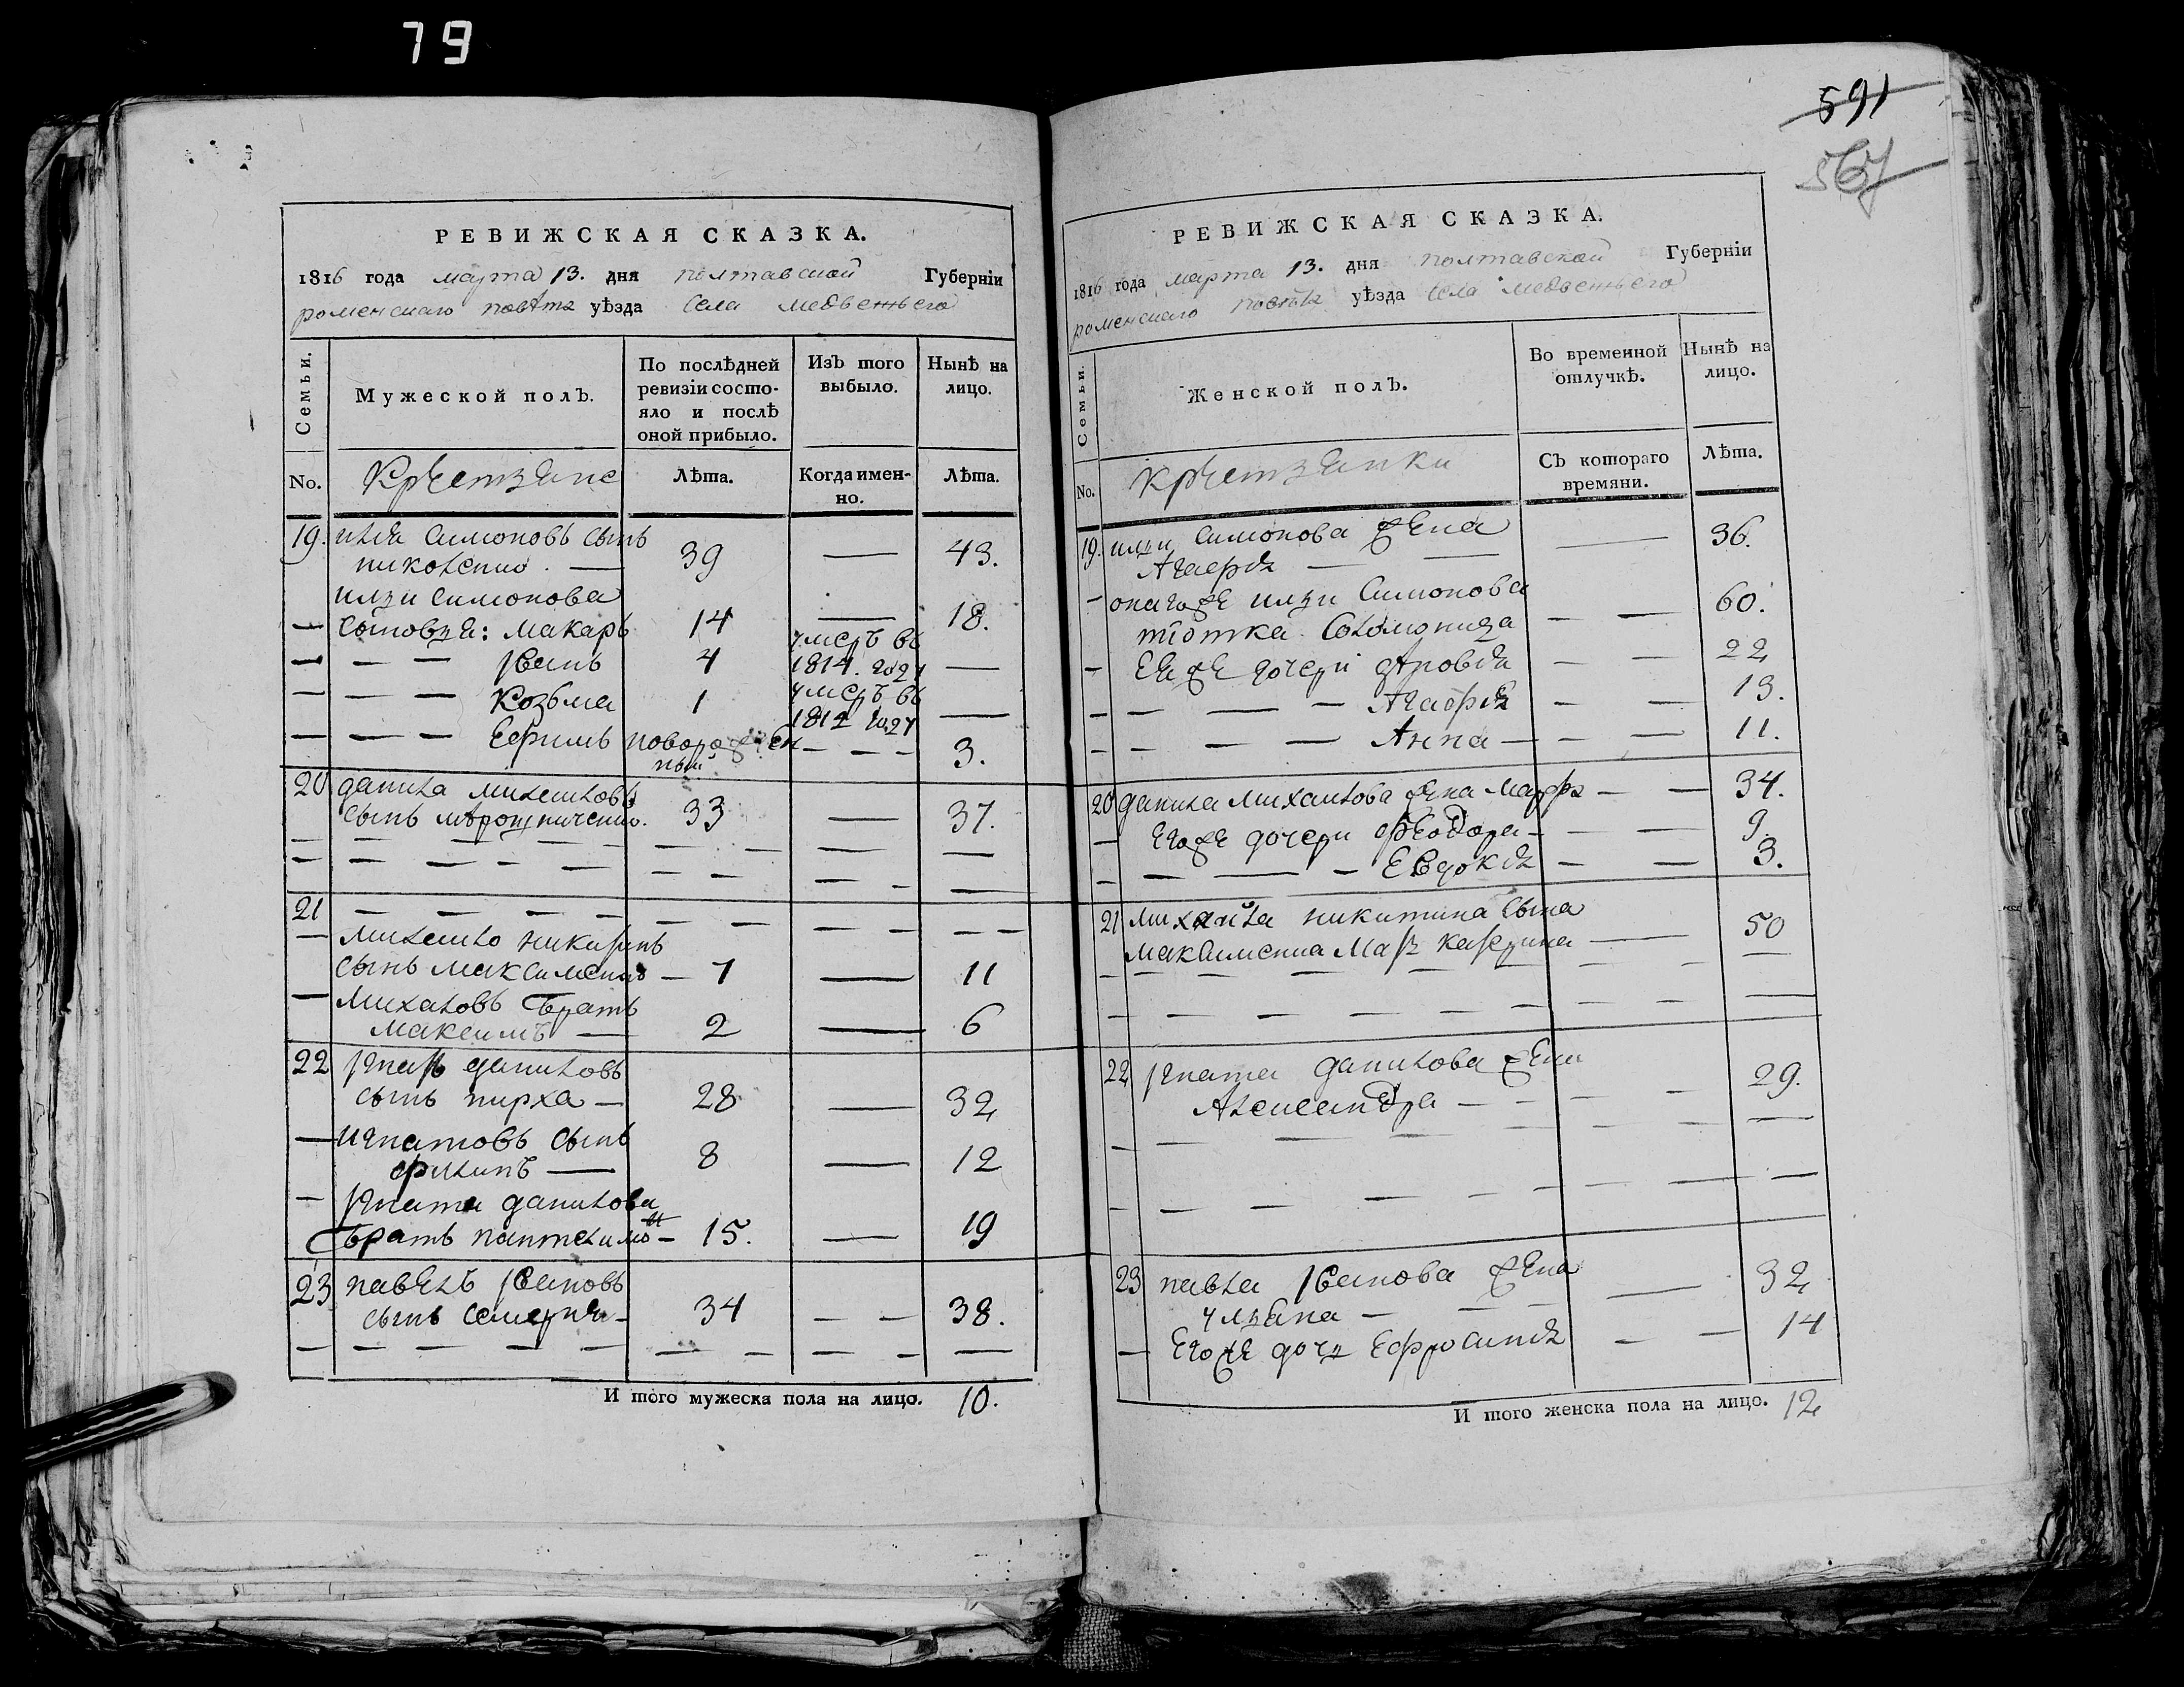 79
РЕВИЖСКАЯ СКАЗКА.
1816 года марта 13. дня полтавской Губерніи
роменскаго повѣта уѣзда Села медвежьего
Семьи.
Мужеской полъ.
По послѣдней ревизіи состо-
яло и послѣ
оной прибыло.
Изъ того
выбыло.
Нынѣ на
лицо.
No.
Крестьяне
Лѣта.
Когда имен-
но.
Лѣта.
19. илія Симоновъ сынъ
39 — 43.
ильи Симонова
— сыновья: макаръ 14 — 18.
— — — Иванъ 4 умеръ въ
1814. году —
— — — Козьма 1 умеръ въ
1812 году —
— — — Ефимъ новорожден
ный — — — 3.
20 данила михайловъ
сынъ 33 — 37.
21 — — — —
— михайло никитинъ
сынъ максименко — 7 — 11
— михаиловъ братъ
максимъ — 2 — 6
22 Игнатъ даниловъ
сынъ пирха — 28 — 32
— игнатовъ сынъ
филипъ — 8 — 12
— Игната данилова
братъ пантелимонъ — 15. — 19
23 павелъ Ивановъ
сынъ 34 — — 38.
И того мужеска пола на лицо. 10.
591
567
РЕВИЖСКАЯ СКАЗКА.
1816 года марта 13. дня полтавской Губерніи
роменскаго повѣта уѣзда Села медвежьего
Семьи.
Женской полъ.
Во временной
отлучкѣ.
Нынѣ на
лицо.
No.
крестьянки
Съ котораго
времяни.
Лѣта.
19. ильи Симонова жена
Агафія — — 36.
— оногоже ильи Симонова
тіотка Соломонида — — 60.
— Еяже дочери — — 22
— — — — Агафія — — 13.
— — — — Анна — — — 11.
20 данила михаилова жена марфа — — 34.
— Егоже дочери феодора — — — 9.
— — — — Евдокія — — 3.
21 михайла никитина сына
максименка мать катерина — 50
22 Игната данилова жена
Александра — — — — 29.
23 павла Иванова жена
ульяна — — — 32
— Егоже дочь Ефросинія — — 14
И того женска пола на лицо. 12